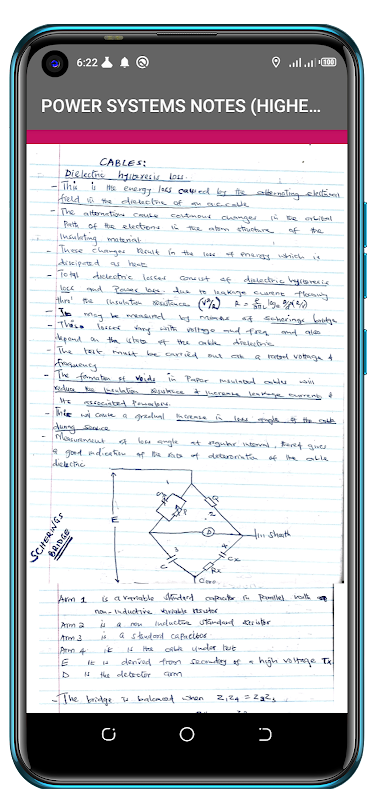 6:22
100
POWER SYSTEMS NOTES (HIGHE...
CABLES:
Dielectric hysteresis loss.
- This is the energy loss caused by the alternating electrical
field in the dielectric of an a.c cable
- The alternation cause continous changes in the orbital
path of the electrons in the atom structure of the
insulating material.
- These changes result in the loss of energy which is
dissipated as heat
- Total dielectric losses consist of dielectric hysteresis
loss and Power loss due to leakage current flowing
thro' the insulation resistance
- It may be measured by means of scherings bridge
- These losses vary with voltage and freq and also
depend on the state of the cable dielectric
The test must be carried out at a rated voltage &
frequency
- The formation of voids in Paper insulated cables will
reduce the insulation resistance & increase leakage current &
its associated Powerloss.
- This will cause a gradual increase in loss angle of the cable
during service
- Measurement of loss angle at regular interval, theref gives
a good indication of the rate of deterioration of the cable
dielectric
1
P
2
E
D
lin sheath
3
4
C
Cx
Rx
Core
SCHERINGS
BRIDGE
Arm 1 is a variable standard capacitor in parallel with a
non-inductive variable resistor
Arm 2 is a non inductive standard resistor
Arm 3 is a standard capacitor
Arm 4 it is the cable under test
E it is derived from secondary of a high voltage Tx.
D is the detector arm
- The bridge is balanced when Z1Z4 = Z2Z3